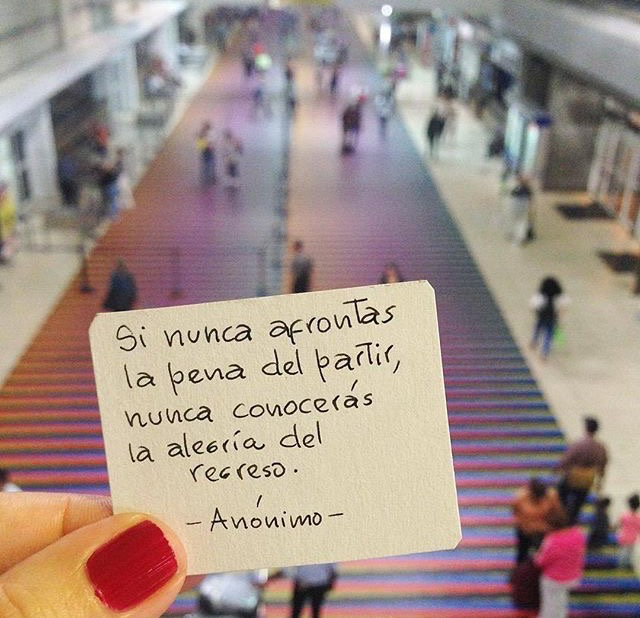 Si nunca afrontas
la pena del partir,
nunca conocerás
la alegría del
regreso.
- Anónimo -